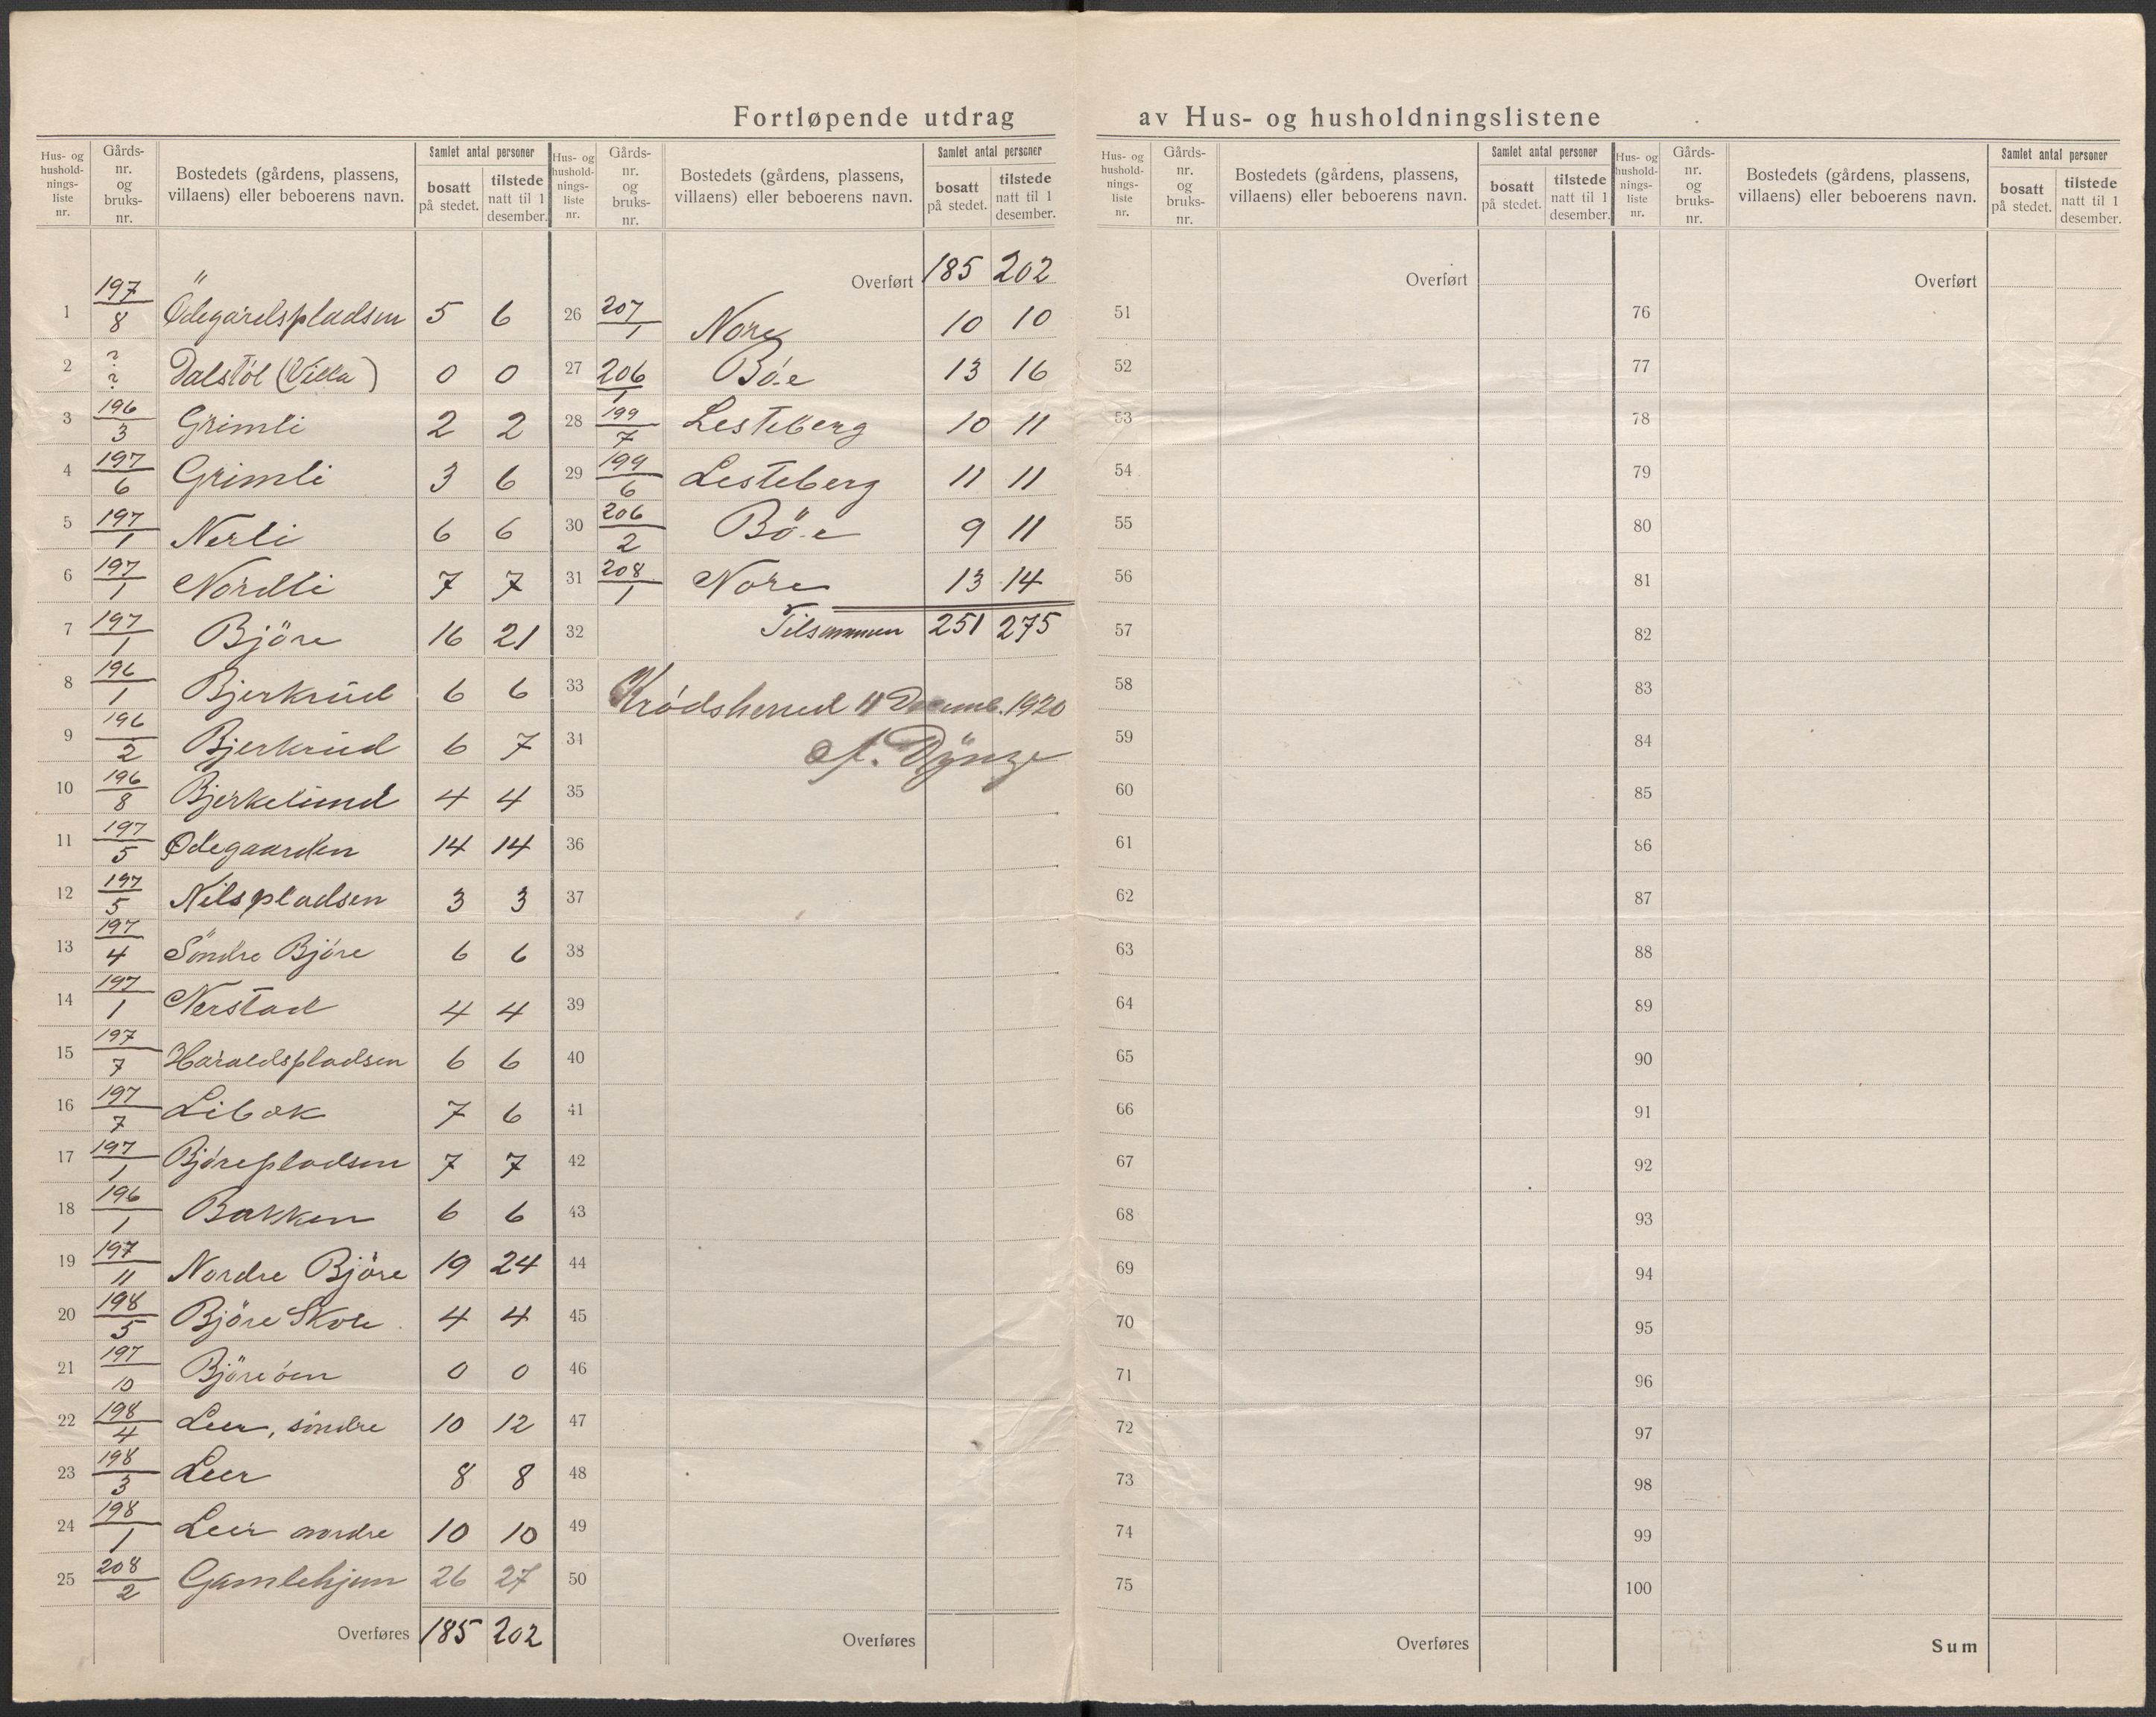 Fortløpende utdrag av Hus- og husholdningslistene
Hus- og hushold-nings-liste nr. | Gårds-nr. og bruks-nr. | Bostedets (gårdens, plassens, villaens) eller beboerens navn. | Samlet antal personer | bosatt på stedet. | tilstede natt til 1 desember.
1 197/8 Ödegardspladsen 5 6
2 ?/? Dalstöl (Villa) 0 0
3 196/3 Grimli 2 2
4 197/6 Grimli 3 6
5 197/1 Nerli 6 6
6 197/1 Nordli 7 7
7 197/1 Björe 16 21
8 196/1 Bjerkrud 6 6
9 196/2 Bjerkrud 6 7
10 196/8 Bjerkelund 4 4
11 197/5 Ødegaarden 14 14
12 197/5 Nilspladsen 3 3
13 197/4 Söndre Björe 6 6
14 197/1 Nerstad 4 4
15 197/7 Haraldspladsen 6 6
16 197/7 Libæk 7 6
17 197/1 Bjørepladsen 7 7
18 196/1 Bakken 6 6
19 197/11 Nordre Björe 19 24
20 198/5 Björe Skole 4 4
21 197/10 Björeöen 0 0
22 198/4 Leer, söndre 10 12
23 198/3 Leer 8 8
24 198/1 Leer nordre 10 10
25 208/2 Gamlehjem 26 27
Overføres 185 202
Hus- og hushold-nings-liste nr. | Gårds-nr. og bruks-nr. | Bostedets (gårdens, plassens, villaens) eller beboerens navn. | Samlet antal personer | bosatt på stedet. | tilstede natt til 1 desember.
Overført 185 202
26 207/1 Nore 10 10
27 206/1 Böe 13 16
28 199/7 Lesteberg 10 11
29 199/6 Lesteberg 11 11
30 206/2 Böe 9 11
31 208/1 Nore 13 14
32 Tilsammen 251 275
33 Krødsherred 11 Decemb. 1920
31 A.
35
36
37
38
39
40
41
42
43
44
45
46
47
48
49
50
Overføres
Hus- og hushold-nings-liste nr. | Gårds-nr. og bruks-nr. | Bostedets (gårdens, plassens, villaens) eller beboerens navn. | Samlet antal personer | bosatt på stedet. | tilstede natt til 1 desember.
Overført
51
52
53
54
55
56
57
58
59
60
61
62
63
64
65
66
67
68
69
70
71
72
73
74
75
Overføres
Hus- og hushold-nings-liste nr. | Gårds-nr. og bruks-nr. | Bostedets (gårdens, plassens, villaens) eller beboerens navn. | Samlet antal personer | bosatt på stedet. | tilstede natt til 1 desember.
Overført
76
77
78
79
80
81
82
83
84
85
86
87
88
89
90
91
92
93
94
95
96
97
98
99
100
Sum